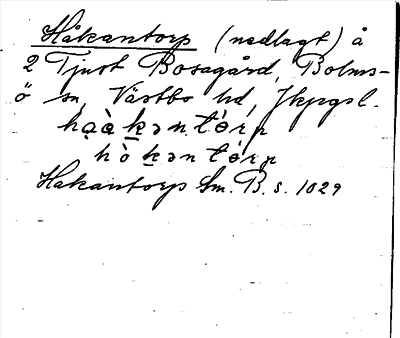 Håkantorp (nedlagt) å
2 Tjust Bosagård, Bolms-
ö sn, Västbo hd, Jkpgsl.
hạàkəntórp
hòkəntórp
Hakantorp Sm. B. s. 1029